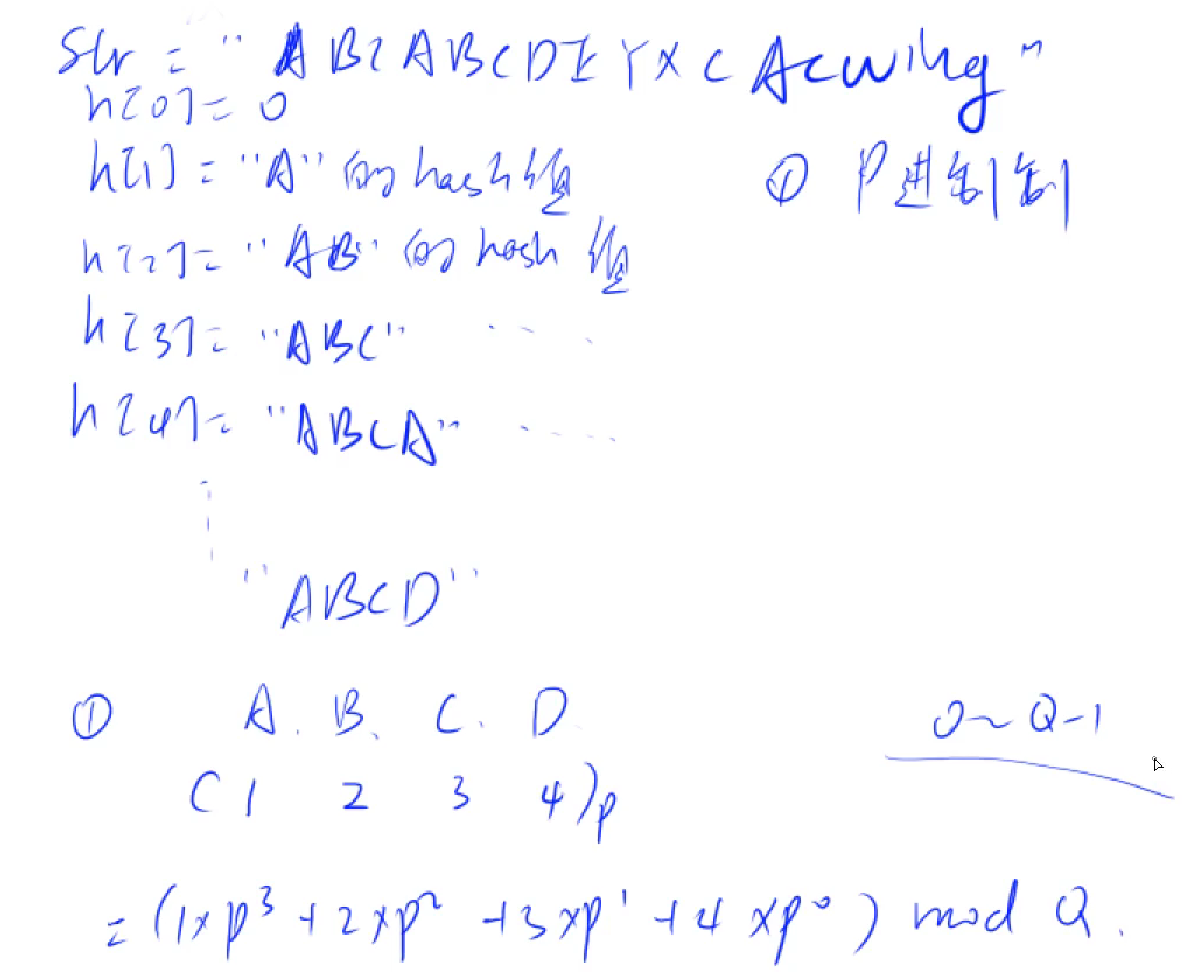 Str = "ABCABCDEYXCAcwing"
h[0] = 0
h[1] = "A" 的 hash 值
① P进制
h[2] = "AB" 的 hash 值
h[3] = "ABC" ....
h[4] = "ABCA" .....
"ABCD"
① A. B. C. D
0~Q-1
(1 2 3 4)p
= (1×p³ + 2×p² + 3×p¹ + 4×p⁰) mod Q.